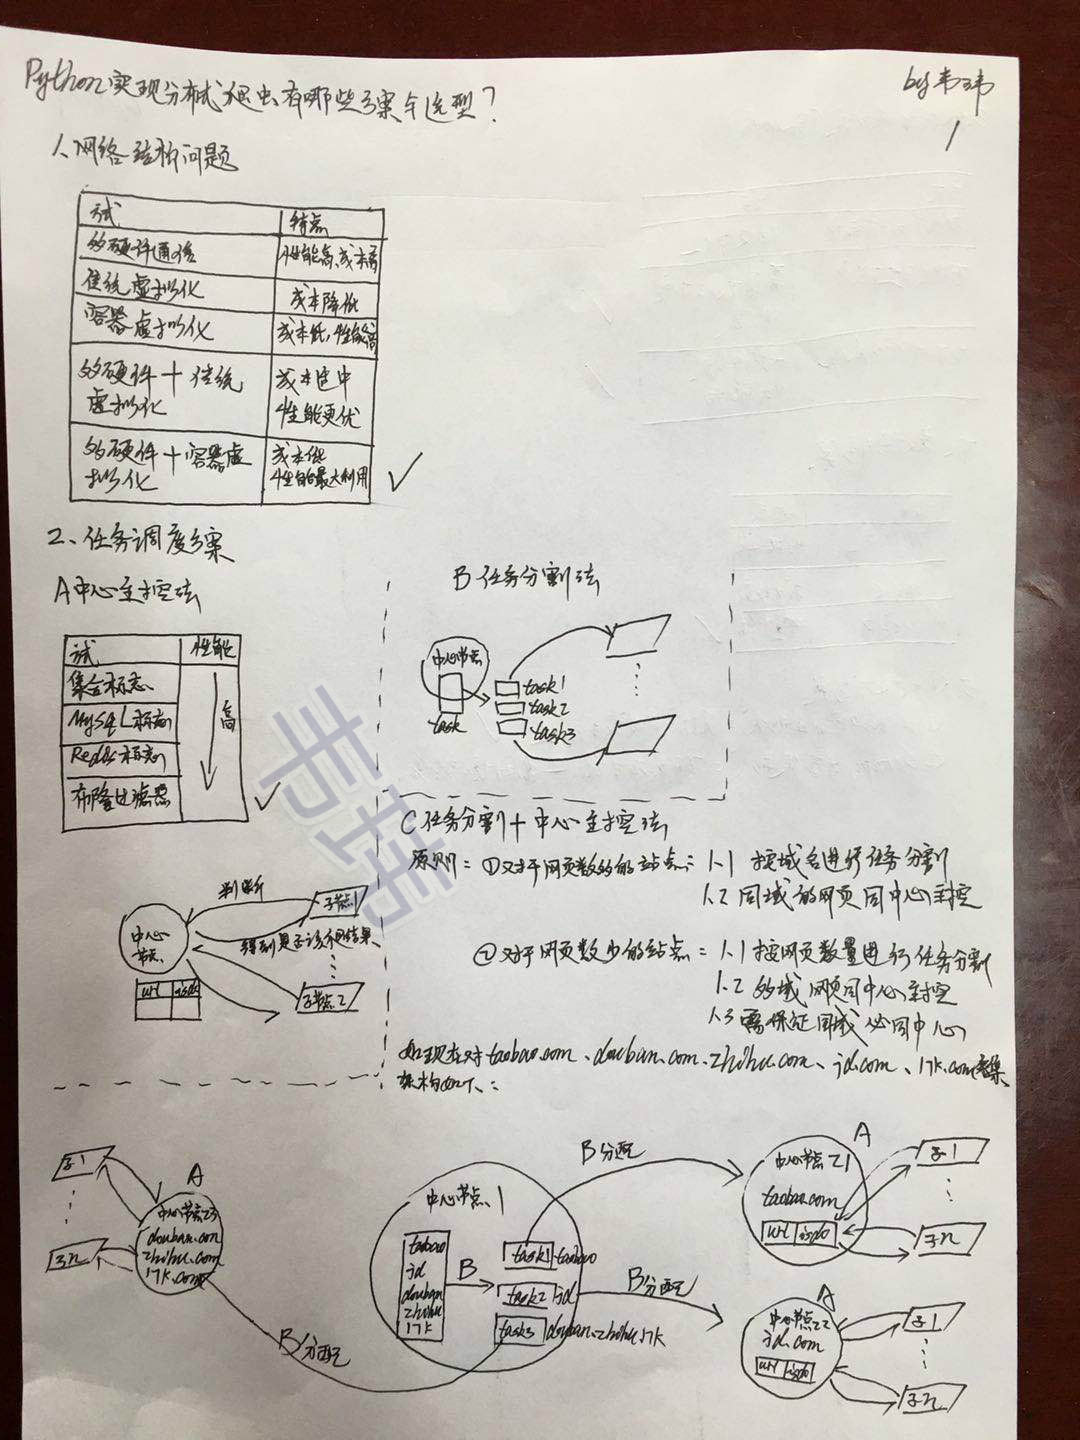 Python实现分布式爬虫有哪些方案与选型?
by韦玮
1
1、网络结构问题
方式 特点
多硬件通信 性能高、成本高
传统虚拟化 成本降低
容器虚拟化 成本低,性能高
多硬件+传统 成本适中
虚拟化 性能更优
多硬件+容器虚 成本低
拟化 性能最大利用
2、任务调度方案
A中心主控法
方式 性能
集合标志
MySQL标志
Redis标志
布隆过滤器
高
中心
节点
url isdo
判断
得到是否该爬结果
子节点1
子节点2
B任务分割法
中心节点
task
task1
task2
task3
C任务分割+中心主控法
原则:①对于网页数多的站点:1.1 按域名进行任务分割
1.2 同域的网页同中心主控
②对于网页数少的站点:1.1按网页数量进行任务分割
1.2 多域网页同中心主控
1.3需保证同域必同中心
如现在对taobao.com、douban.com、zhihu.com、jd.com、17k.com采集
架构如下:
子1
子n
A
中心节点23
douban.com
zhihu.com
17k.com
B分配
中心节点1
taobao
jd
douban
zhihu
17k
B
task1 taobao
task2 jd
task3 douban.zhihu.17k
B分配
B分配
A
中心节点21
taobao.com
url isdo
子1
子n
A
中心节点22
jd.com
url isdo
子1
子n
韦玮